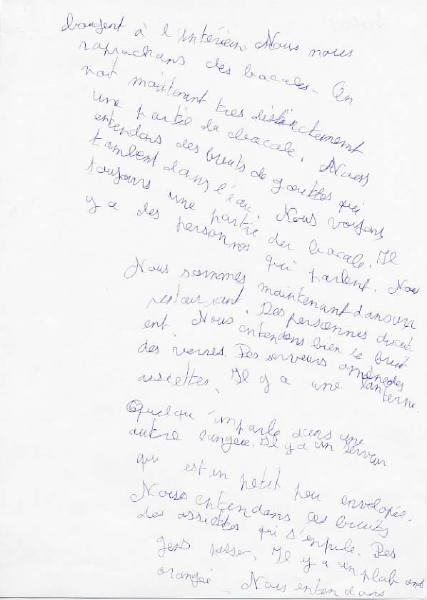 bougent à l'intérieur Nous nous
raprochons des bocales. On
voit maintenant tres distinctement
une partie du bocale. Nous
entendons des bruits de gouttes qui
tombent dans l'eau. Nous voyons
toujours une partie du bocale. Il
y a des personnes qui parlent. Nou
Nous sommes maintenant dans un
restaurant. Des personnes discut
ent. Nous entendons bien le bruit
des verres. Des serveurs amène des
assiettes. Il y a une lanterne
Quelqu'un parle dans une
autre langue. Il y a un serveur
qui est un petit peu envelopée.
Nous entendons ces bruits
des assiettes qui s'empile. Des
gens passer. Il y a un plab ond
orangé. Nous entendons